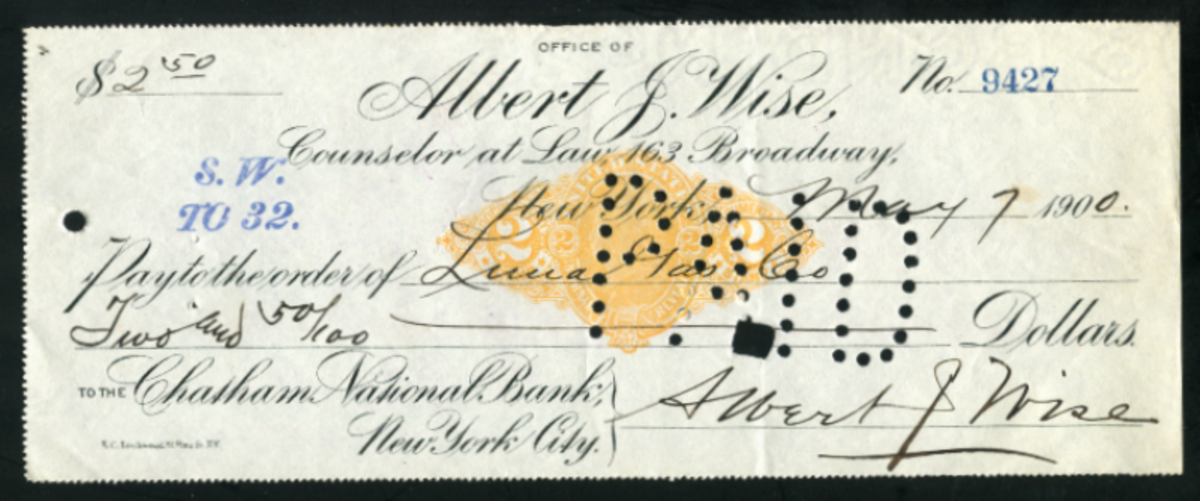 OFFICE OF
$2 50
Albert J. Wise,
No. 9427
Counselor at Law, 163 Broadway,
S. W.
TO 32.
New York, May 7 1900.
Pay to the order of Luna Gas Co
2 2 2
Two and 50/100 Dollars.
PAID
TO THE Chatham National Bank,
New York City.
Albert J Wise